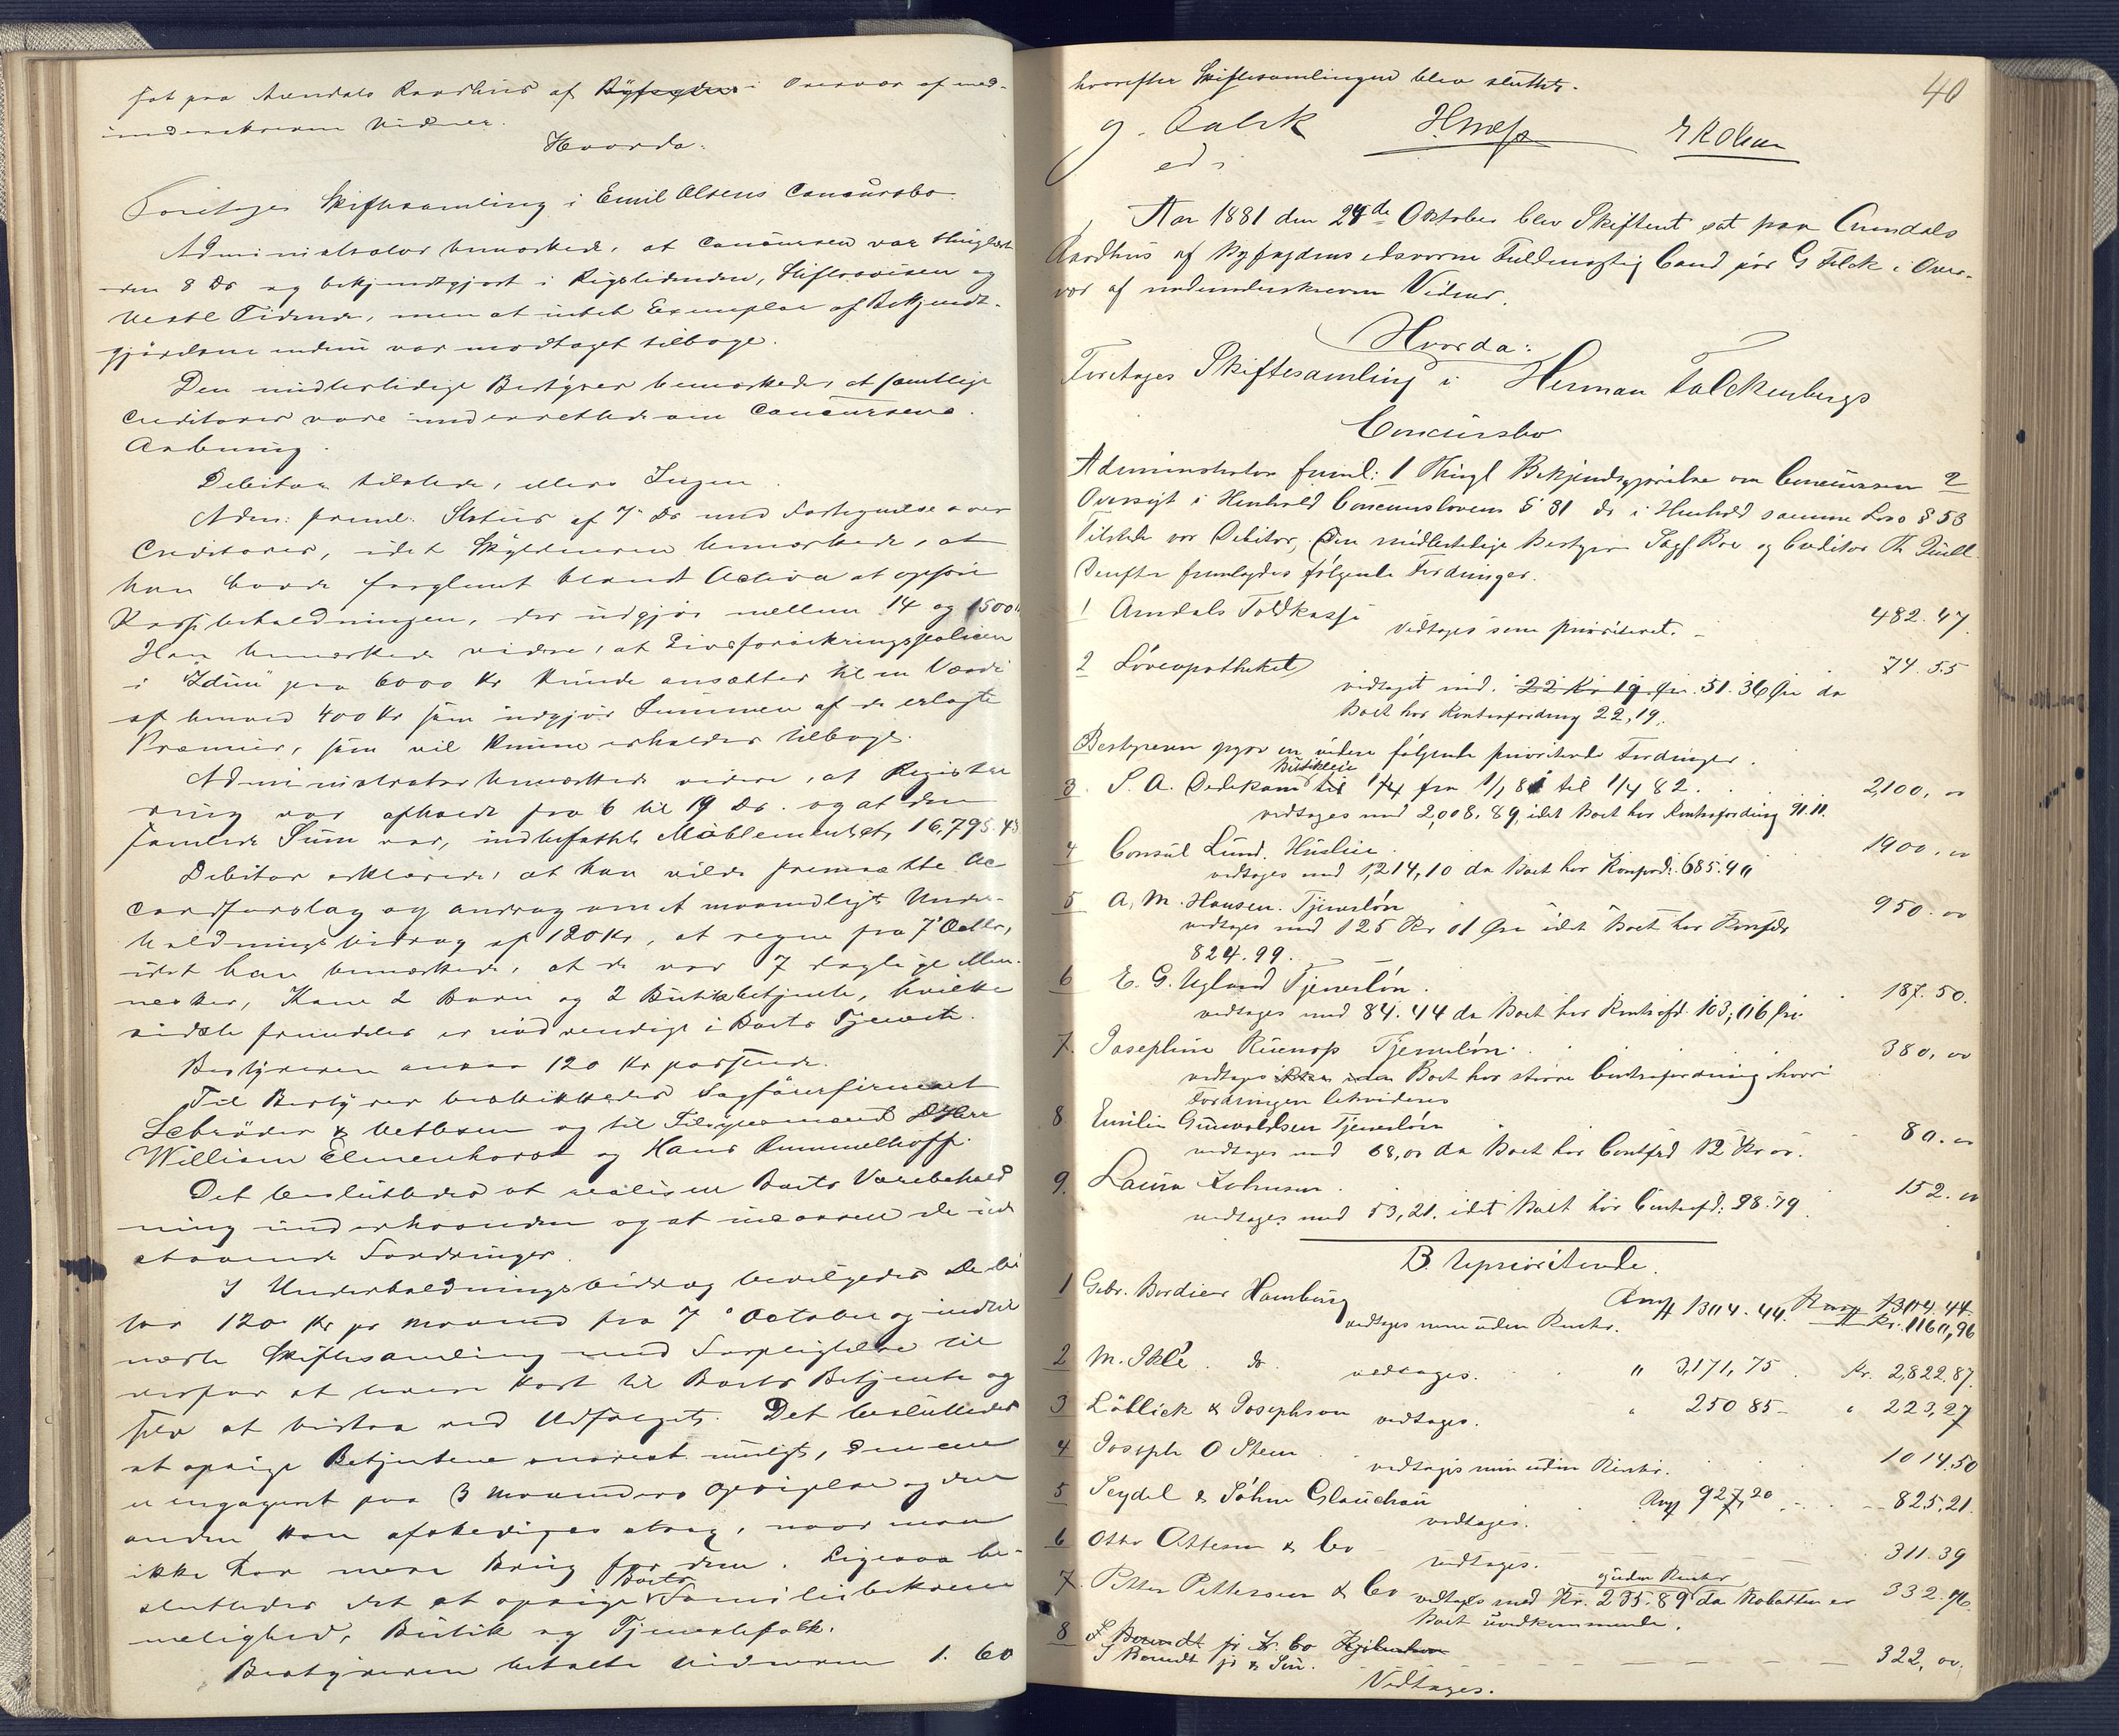 sat paa Arendals Raadhus af Byfogden i Overvær af med-
underskrevne Vidner.
Hvorda:
Foretoges Skiftesamling i Emil Olsens Concursbo
Administrator bemærkede, at Concursen var thinglæst
den 8 ds og bekjendtgjort i Rigstidenden, Stiftsavisen og
Vestl Tidende, men at intet Exemplar af Bekjendt-
gjørelsen endnu var modtaget tilbage.
Den midlertidige Bestyrer bemærkede, at samtlige
Creditorer vare underrettede om Concursens
Aabning.
Debitor tilstede, ellers Ingen.
Adm: freml. Status af 7 ds med Fortegnelse over
Creditorer, idet Skyldneren bemærkede, at
han havde forglemt blandt Activa at opføre
Kassebeholdningen, der udgjør mellem 14 og 1500
Han bemærkede videre, at Livsforsikringspolicen
i "Idun" paa 6000 Kr kunde ansættes til en Værdi
af henved 400 Kr som udgjør Summen af de erlagte
Præmier, som vil kunne erholdes tilbage.
Administrator bemærkede videre, at Registre
ring var afholdt fra 6 til 19 ds. og at den
samlede Sum var, indbefattet Møblementet, 16,795.43
Debitor erklærede, at han vilde fremsætte Ac
cordforslag og androg om et maanedligt Under-
holdningsbidrag af 120 Kr, at regne fra 7 Octbr,
idet han bemærkede, at de var 7 daglige Men-
nesker, Kone 2 Børn og 2 Butikbetjente, hvilke
sidste fremdeles er nødvendige i Boets Tjeneste.
Bestyreren ansaa 120 Kr passende.
Til Bestyrer beskikkedes Sagførerfirmaet
Schrøder & Vethsen og til Tilsynsmænd DHerr
William Elmenhorst og Hans Rummelhoff.
Det besluttedes at realisere Boets Varebehold
ning underhaanden og at incassere de ude
staaende Fordringer.
I Underholdningsbidrag bevilgedes Debi
tor 120 Kr pr Maaned fra 7 October og indtil
næste Skiftesamling med Forpligtelse til
at levere Kost til Boets Betjente og
selv at bistaa ved Udsalget. Det besluttedes
at opsige Betjentene snarest muligt, den ene
er engageret paa 3 Maaneders Opsigelse og den
anden kan afskediges strax, naar man
ikke har mere Brug for dem. Ligesaa be-
sluttedes det at opsige Boets Familiebekvem
melighed, Butik og Tjenestefolk.
Bestyreren betalte Vidnerne 1. 60
40
hvorefter Skiftesamlingen blev sluttet.
G. Falck
ed.
Aar 1881 den 24de Oktober blev Skifteret sat paa Arendals
Raadhus af Byfogdens edsvorne Fuldmægtig Cand jur G Falck i Over-
vær af medunderskrevne Vidner.
Hvorda:
Foretoges Skiftesamling i Herman Falckenbergs
Concursbo
Administrator freml: 1 Thingl Bekjendtgjørelse om Concursen 2
Oversigt i Henhold Concurslovens § 31 do i Henhold samme Lovs § 53
Tilstede var Debitor, Den midlertidige Bestyrer Sagf Boe og Creditor Th Juell
Derefter fremlagdes følgende Fordringer.
1 Arendals Toldkasse 482.47
vedtages som prioriteret.
2 Løveapotheket 74.55
vedtaget med. 22 Kr 19 Øre. 51.36 Øre da
Boet har Kontrafordring 22,19.
Bestyreren gjør en videre følgende prioriterede Fordringer.
3. S. A. Dedekam Butikleie til 1/4 fra 1/1 81 til 1/4 82. 2,100,00
vedtages med 2,008.89, idet Boet har Kontrafordring 91.11.
4 Consul Lund. Husleie. 1900.00
vedtages med 1,214,10 da Boet har Konfordr. 685.90
5 A. M. Hansen. Tjenerløn 950.00
vedtages med 125 Kr 01 Øre idet Boet har Konfdr
824.99.
6 E. G. Ugland Tjenerløn. 187.50.
vedtages med 84.44 da Boet har Kontrafd. 103,06 Øre
7. Josephine Tjenerløn. 380,00
vedtages Boet har større Contrafordring hvori
Fordringen likvideres
8 Emilie Gunvaldsen Tjenerløn 80.00
vedtages med 68,00 da Boet har Contfrd 12 Kr 00.
9. Laura Johnsen. 152.00
vedtages med 53,21. idet Boet har Contrafd: 98.79
B. Uprioriterede.
1 Gebr. Bordier Hamburg Rmk 1304.44. Kr. 1160,96
vedtages men uden Renter.
2 M. Iklé. do. vedtages. " 3,171,75 Kr. 2,822.87.
3 Löblick & Josephson vedtages. " 250 85 " 223,27
4 Joseph O Stern vedtages men uden Renter. 1014.50
5 Seydel & Söhne Glauchau Rmk 927,20 825.21.
vedtages.
6 Otto Ottesen & Co vedtages. 311.39
7. Petter Pettersen & Co vedtages med Kr. 295.89 og uden Renter da Rabatten er 332.
Boet uvedkommende.
8 J Brandt jr & Co Kjøbenhavn
J Brandt jr & Søn. 322,00.
Vedtages.